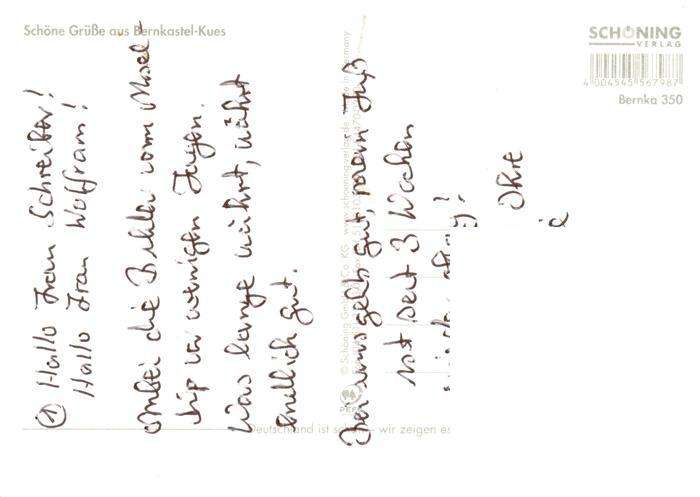 Schöne Grüße aus Bernkastel-Kues
SCHÖNING
VERLAG
4 004545 567987
Bernka 350
① Hallo Frau Schreiber!
Hallo Frau Wolfram!
Anbei die Bilder vom Mosel-
trip vor wenigen Tagen.
Was lange währt, währt
endlich gut.
Bei uns geht's gut, mein Fuß
ist seit 3 Wochen
Ohre
Deutschland ist schön – wir zeigen es